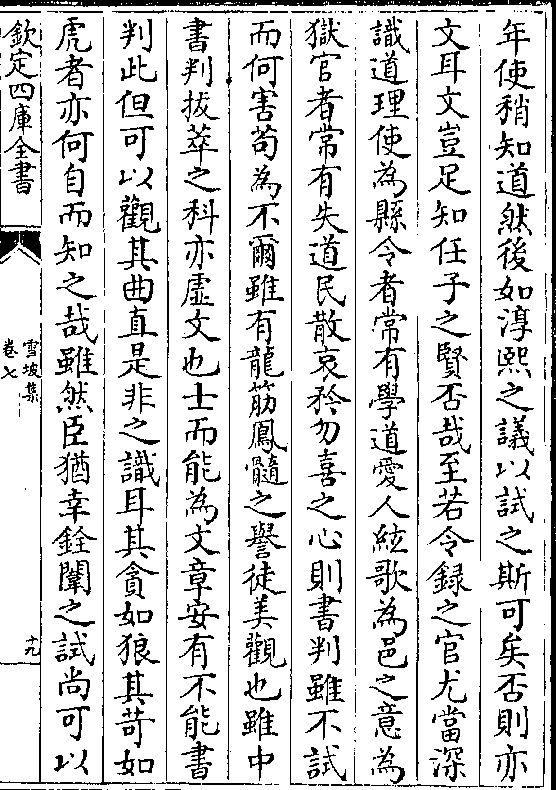 年使稍知道然後如淳熙之議以試之斯可矣否則亦
文耳文豈足知任子之賢否哉至若令録之官尤當深
識道理使為縣令者常有學道愛人絃歌為邑之意為
獄官者常有失道民散哀矜勿喜之心則書判雖不試
而何害茍為不爾雖有龍筋鳳髓之譽徒美觀也雖中
書判拔萃之科亦虛文也士而能為文章安有不能書
判此但可以觀其曲直是非之識耳其貪如狼其苛如
虎者亦何自而知之哉雖然臣猶幸銓闈之試尚可以
欽定四庫全書
雪坡集
卷七
十九